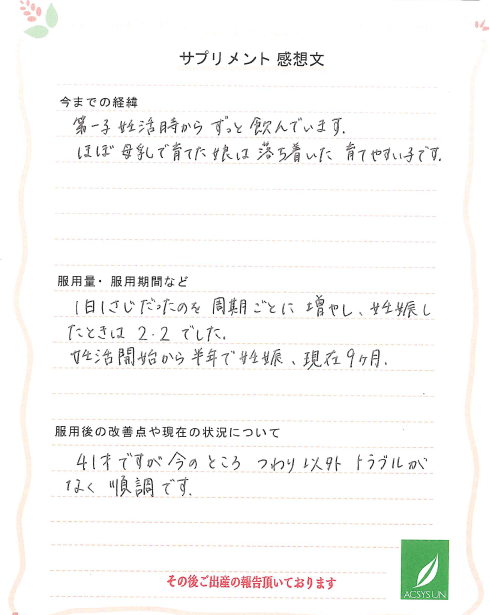 サプリメント 感想文
今までの経緯
第一子妊活時からずっと飲んでいます.
ほぼ母乳で育てた娘は落ち着いた 育てやすい子です.
服用量・服用期間など
1日1さじだったのを 周期ごとに 増やし、妊娠し
たときは 2.2 でした.
妊活開始から半年で妊娠、現在9ヶ月.
服用後の改善点や現在の状況について
41才ですが今のところ つわり以外 トラブルが
なく 順調です.
その後ご出産の報告頂いております
ACSYSUN